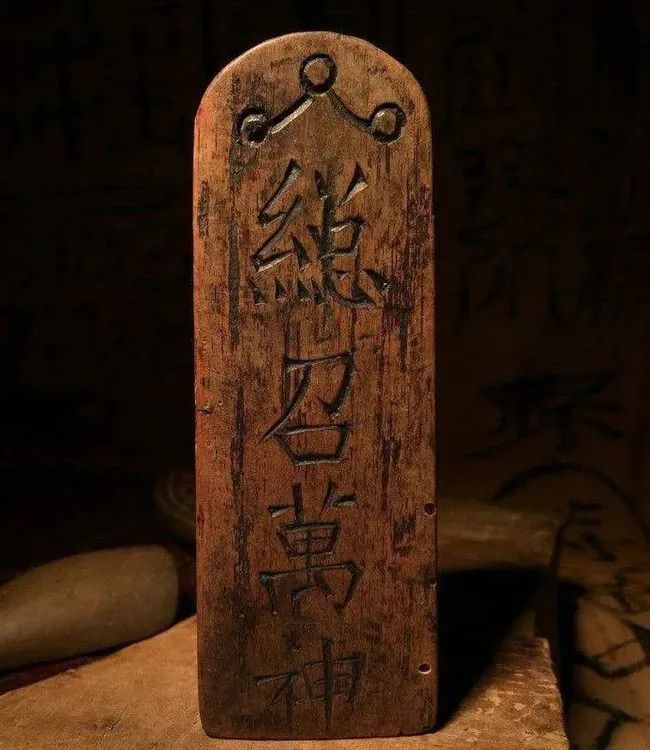 總召萬神